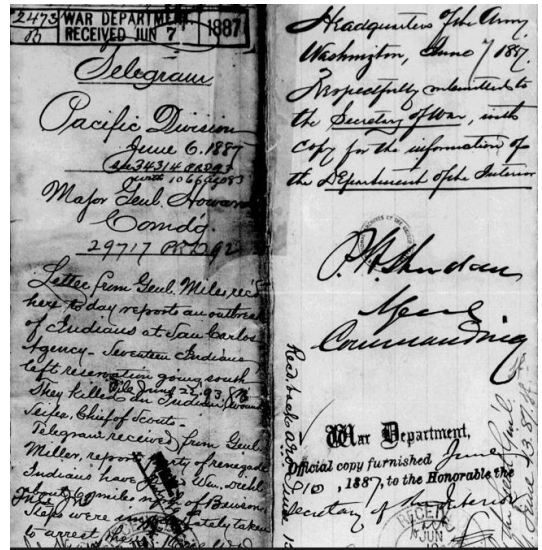 2473
B
WAR DEPARTMENT
RECEIVED JUN 7
1887
Telegram
Pacific Division
June 6, 1887
34314 PRD 93
with
Major Genl. Howard
Comdg.
29717 PRD 92
Letter from Genl. Miles rec'd
here to day reports an outbreak
of Indians at San Carlos
Agency – Seventeen Indians
left reservation going south
File June
They killed an Indian, wound
Seifer, Chief of Scouts –
Telegram received from Genl.
Miller, reports party of renegade
Indians have Wm. Diehl
about miles of Benson.
Steps were immediately taken
to arrest them
Headquarters of the Army
Washington, June 7 1887.
Respectfully submitted to
the Secretary of War, with
copy for the information of
the Department of the Interior
P. H. Sheridan
Genl
Commanding
War Department,
June
Official copy furnished
10, 1887, to the Honorable the
Secretary of the Interior
Rec'd back
June
RECEIVED
JUN